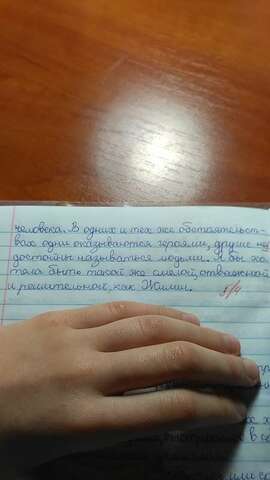 человека. В одних и тех же обстоятельст-
вах одни оказываются героями, другие не
достойны называться людьми. Я бы хо-
тела быть такой же смелой, отважной
и решительной, как Жилин.
5/4